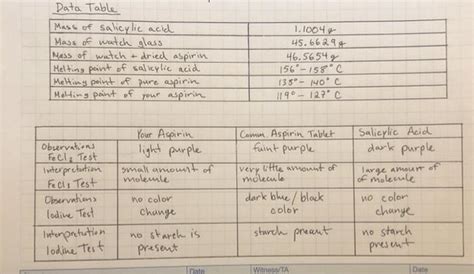 Data Table
Mass of salicylic acid 1.1004g
Mass of watch glass 45.6629g
Mass of watch + dried aspirin 46.5654g
Melting point of salicylic acid 156° - 158° C
Melting point of pure aspirin 135° - 140° C
Melting point of your aspirin 119° - 127° C
Your Aspirin Comm Aspirin Tablet Salicylic Acid
Observations FeCl3 Test light purple faint purple dark purple
Interpretation FeCl3 Test small amount of molecule very little amount of molecule large amount of of molecule
Observations Iodine Test no color change dark blue / black color no color change
Interpretation Iodine Test no starch is present starch present no starch present
Date Witness/TA Date